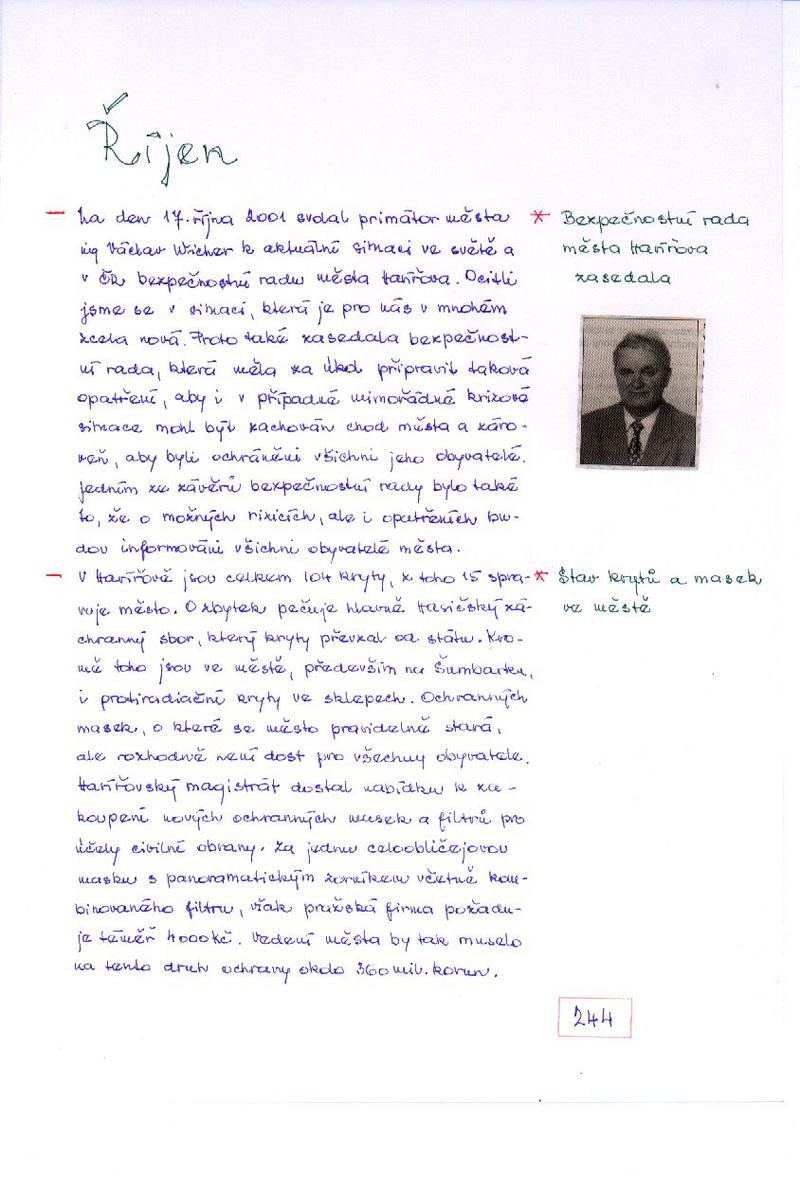 Říjen
Na den 17. října 2001 svolal primátor města
ing Václav Wicher k aktuální situaci ve světě a
v ČR bezpečnostní radu města Havířova. Ocitli
jsme se v situaci, která je pro nás v mnohém
zcela nová. Proto také zasedala bezpečnost-
ní rada, která měla za úkol připravit taková
opatření, aby i v případné mimořádné krizové
situace mohl být zachován chod města a záro-
veň, aby byli ochráněni všichni jeho obyvatelé.
Jedním ze závěrů bezpečnostní rady bylo také
to, že o možných rizicích, ale i opatřeních bu-
dou informováni všichni obyvatelé města.
V Havířově jsou celkem 104 kryty, z toho 15 spra-
vuje město. O zbytek pečuje hlavně Hasičský zá-
chranný sbor, který kryty převzal od státu. Kro-
mě toho jsou ve městě, především na Šumbarku,
i protiradiační kryty ve sklepech. Ochranných
masek, o které se město pravidelně stará,
ale rozhodně není dost pro všechny obyvatele.
Havířovský magistrát dostal nabídku k za-
koupení nových ochranných masek a filtrů pro
účely civilní obrany. Za jednu celoobličejovou
masku s panoramatickým zorníkem včetně kom-
binovaného filtru, však pražská firma požadu-
je téměř 4000 kč. Vedení města by tak muselo
na tento druh ochrany okolo 360 mil. korun.
* Bezpečnostní rada
města Havířova
zasedala
* Stav krytů a masek
ve městě
244